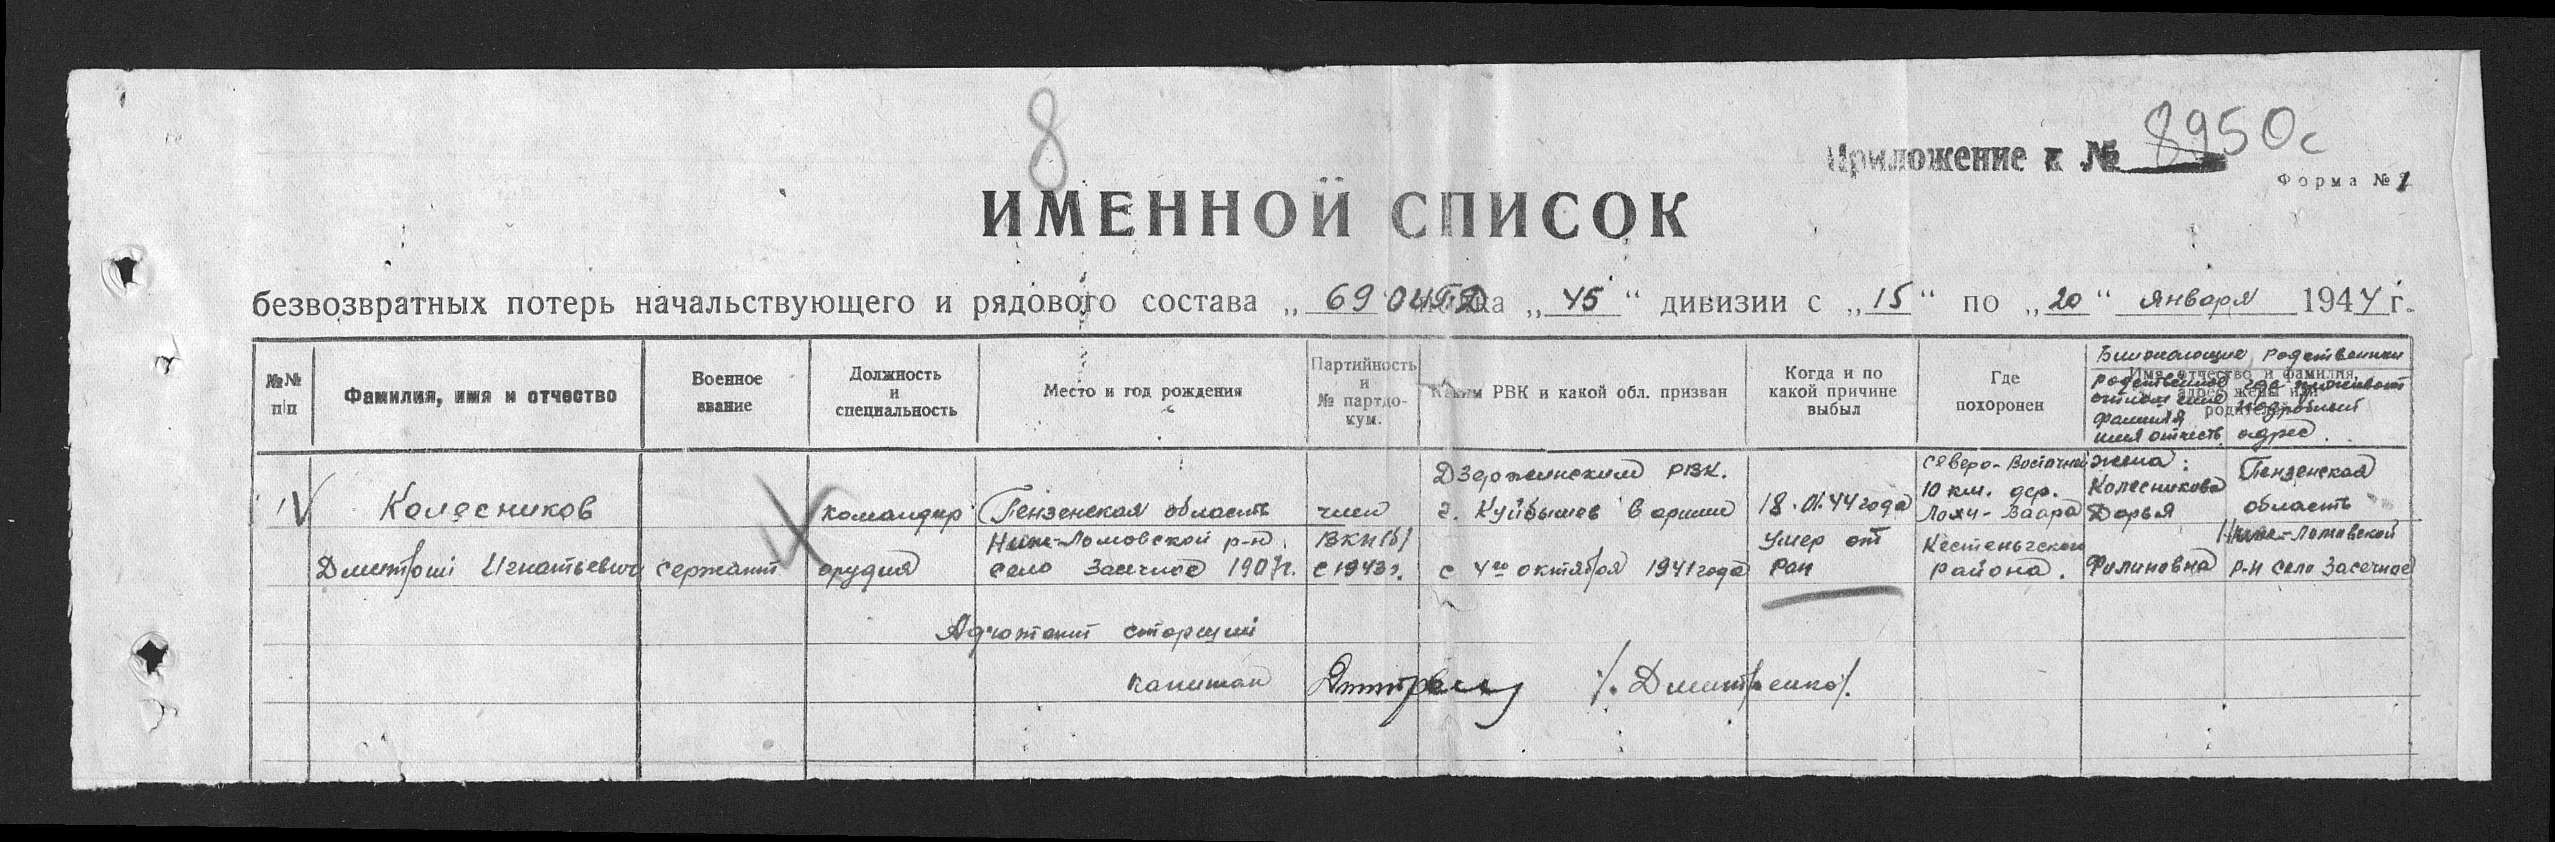 8
Приложение к № 8950с
Форма № 1
ИМЕННОЙ СПИСОК
безвозвратных потерь начальствующего и рядового состава „ 69 полка „ 45 “ дивизии с „ 15 “ по „ 20 “ января 1944 г.
№№ п/п
Фамилия, имя и отчество
Военное звание
Должность и специальность
Место и год рождения
Партийность и № партдокум.
Каким РВК и какой обл. призван
Когда и по какой причине выбыл
Где похоронен
Ближайшие родственники
Имя, отчество и фамилия, адрес жены или родителей
родственное отношение фамилия имя отчеств.
где проживают подробный адрес.
1 V
Колесников
Дмитрий Игнатьевич
сержант
командир
орудия
Пензенская область
Ниж-Ломовской р-н.
село Засечное 1907г.
член
ВКП(б)
с 1943г.
Дзержинским РВК.
г. Куйбышев в армии
с 4го октября 1941 года
18.01.44 года
Умер от
ран
Северо-Восточней
10 км. дер.
Лохи-Ваара
Кестеньгского
района.
жена:
Колесникова
Дарья
Филиповна
Пензенская
область
Ниж-Ломовской
р-н село Засечное
Адъютант старший
капитан /. Дмитренко/.